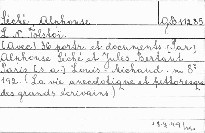 Séché, Alphonse
L. N. Tolstoï.
(Avec) 36 portr et documents (Par)
Alphonse Séché et Jules Bertaut
Paris (s. a.) Louis-Michaud. in 8°
192. (La vie anecdotique et pittoresque
des grands écrivains)